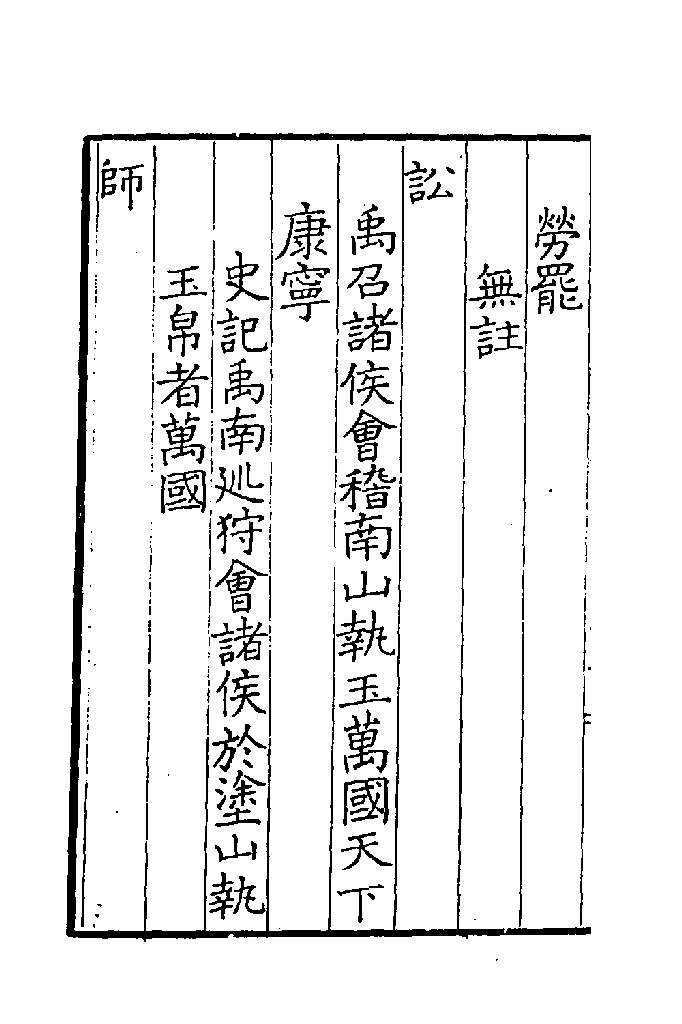 勞罷
無註
訟
禹召諸侯會稽南山執玉萬國天下
康寧
史記禹南廵狩會諸侯於塗山執
玉帛者萬國
師